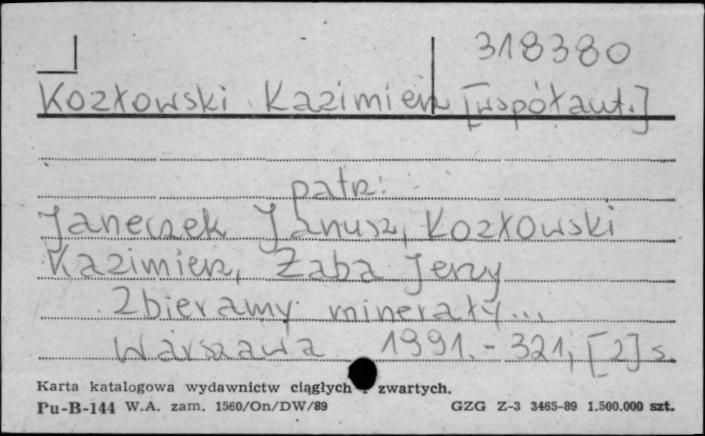 318380
Kozłowski Kazimierz [współaut.]
patrz:
Janeczek Janusz, Kozłowski
Kazimierz, Żaba Jerzy
Zbieramy minerały...
Warszawa 1991. - 321, [2] s.
Karta katalogowa wydawnictw ciągłych i zwartych.
Pu-B-144 W.A. zam. 1560/On/DW/89 GZG Z-3 3465-89 1.500.000 szt.